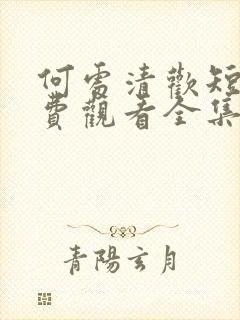 何處清歡短
費觀看全集
青陽玄月